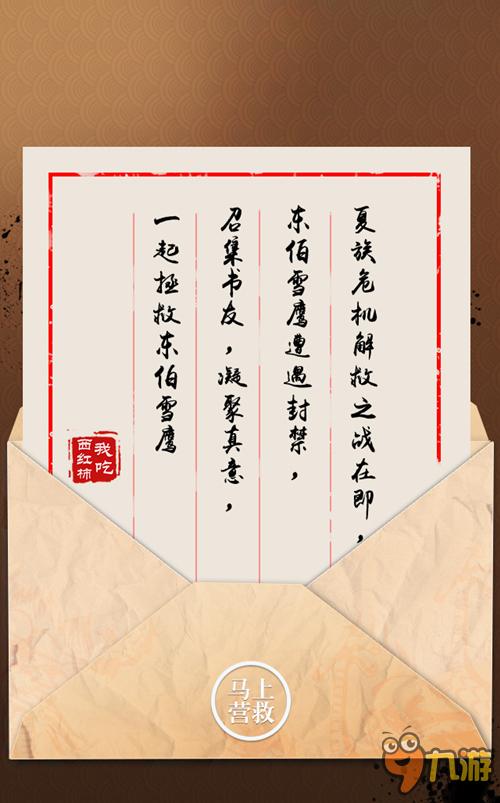 夏族危机解救之战在即，
东伯雪鹰遭遇封禁，
召集书友，凝聚真意，
一起拯救东伯雪鹰
我吃
西红柿
马上
营救
九游